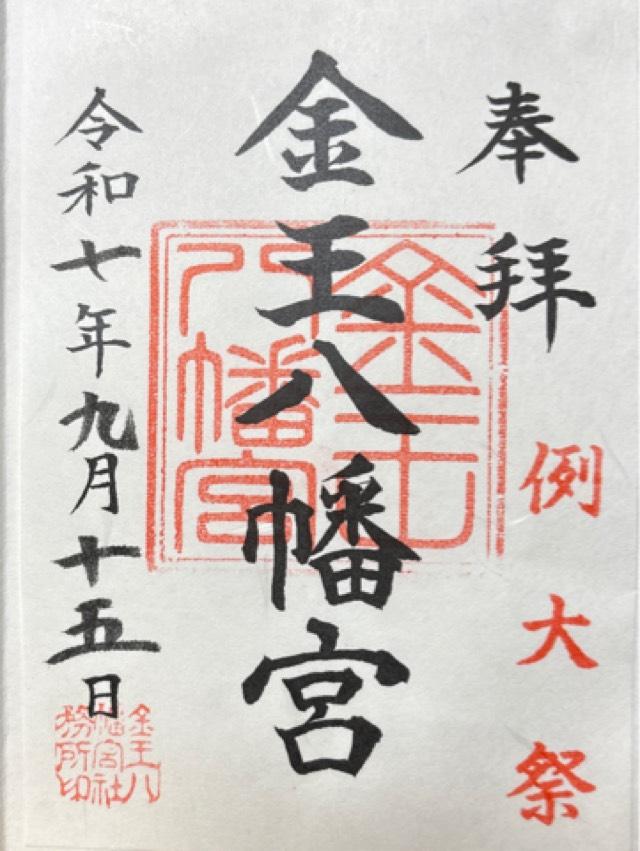 奉拝
例大祭
金王八幡宮
金王八幡宮
令和七年九月十五日
金王八幡宮社務所印